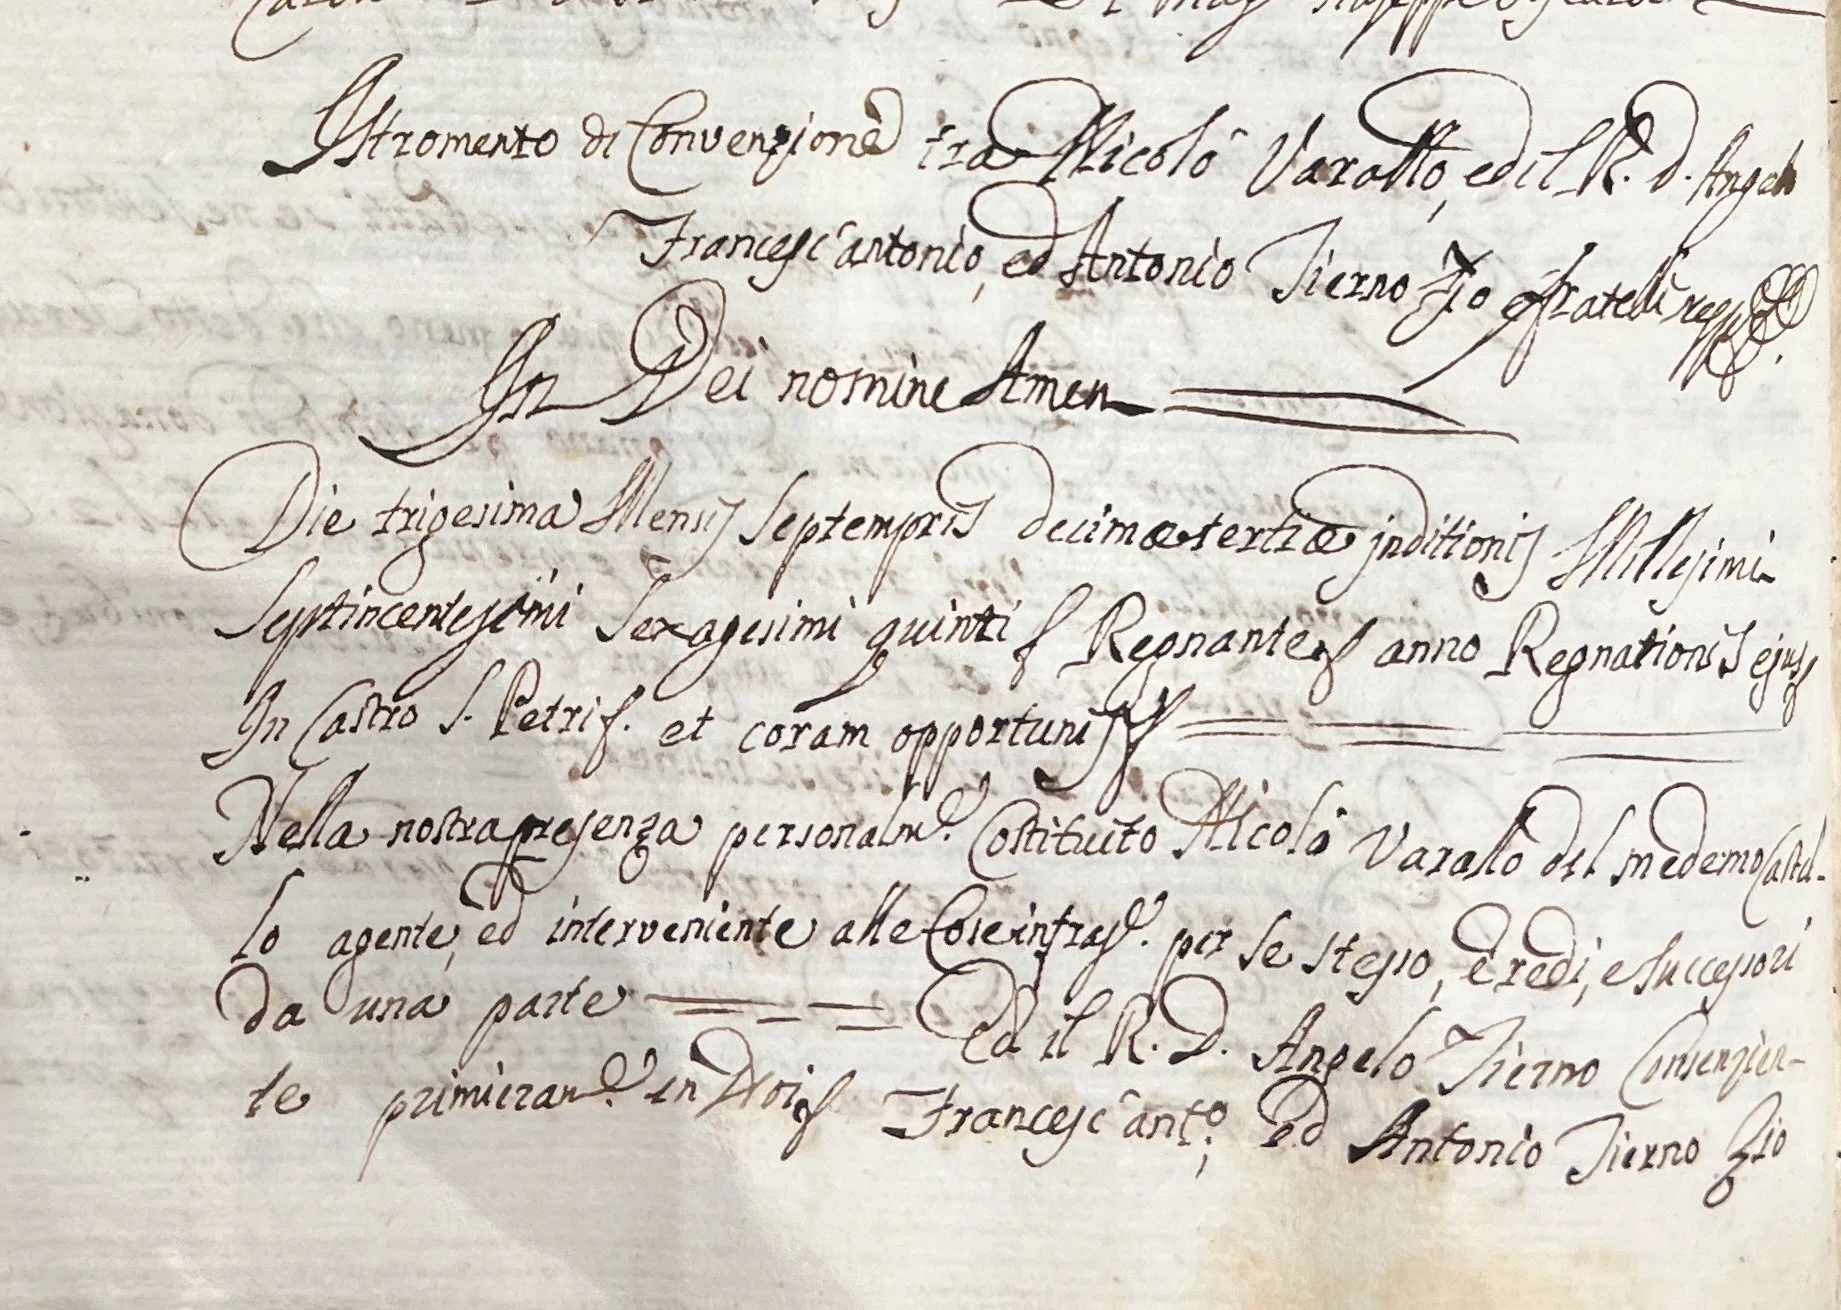 Istromento di Convenzione tra Nicolò Varallo, ed il R. D. Angelo
Francesc'antonio, ed Antonio Tierno Zio e fratelli
In Dei nomine Amen
Die trigesima Mensis Septempris decimætertiæ inditionis Millesimi
Septincentesimi Sexagesimi quinti Regnante anno Regnationis ejus
In Castro S. Petri et coram opportunis
Nella nostra presenza personalm.e Costituito Nicolò Varallo del medemo Castel-
lo agente, ed interveniente alle Cose infras.e per se stesso, eredi, e successori
da una parte Ed il R. D. Angelo Tierno Consenzien-
te primieram.e in Noi Francesc'ant.o; ed Antonio Tierno Zio